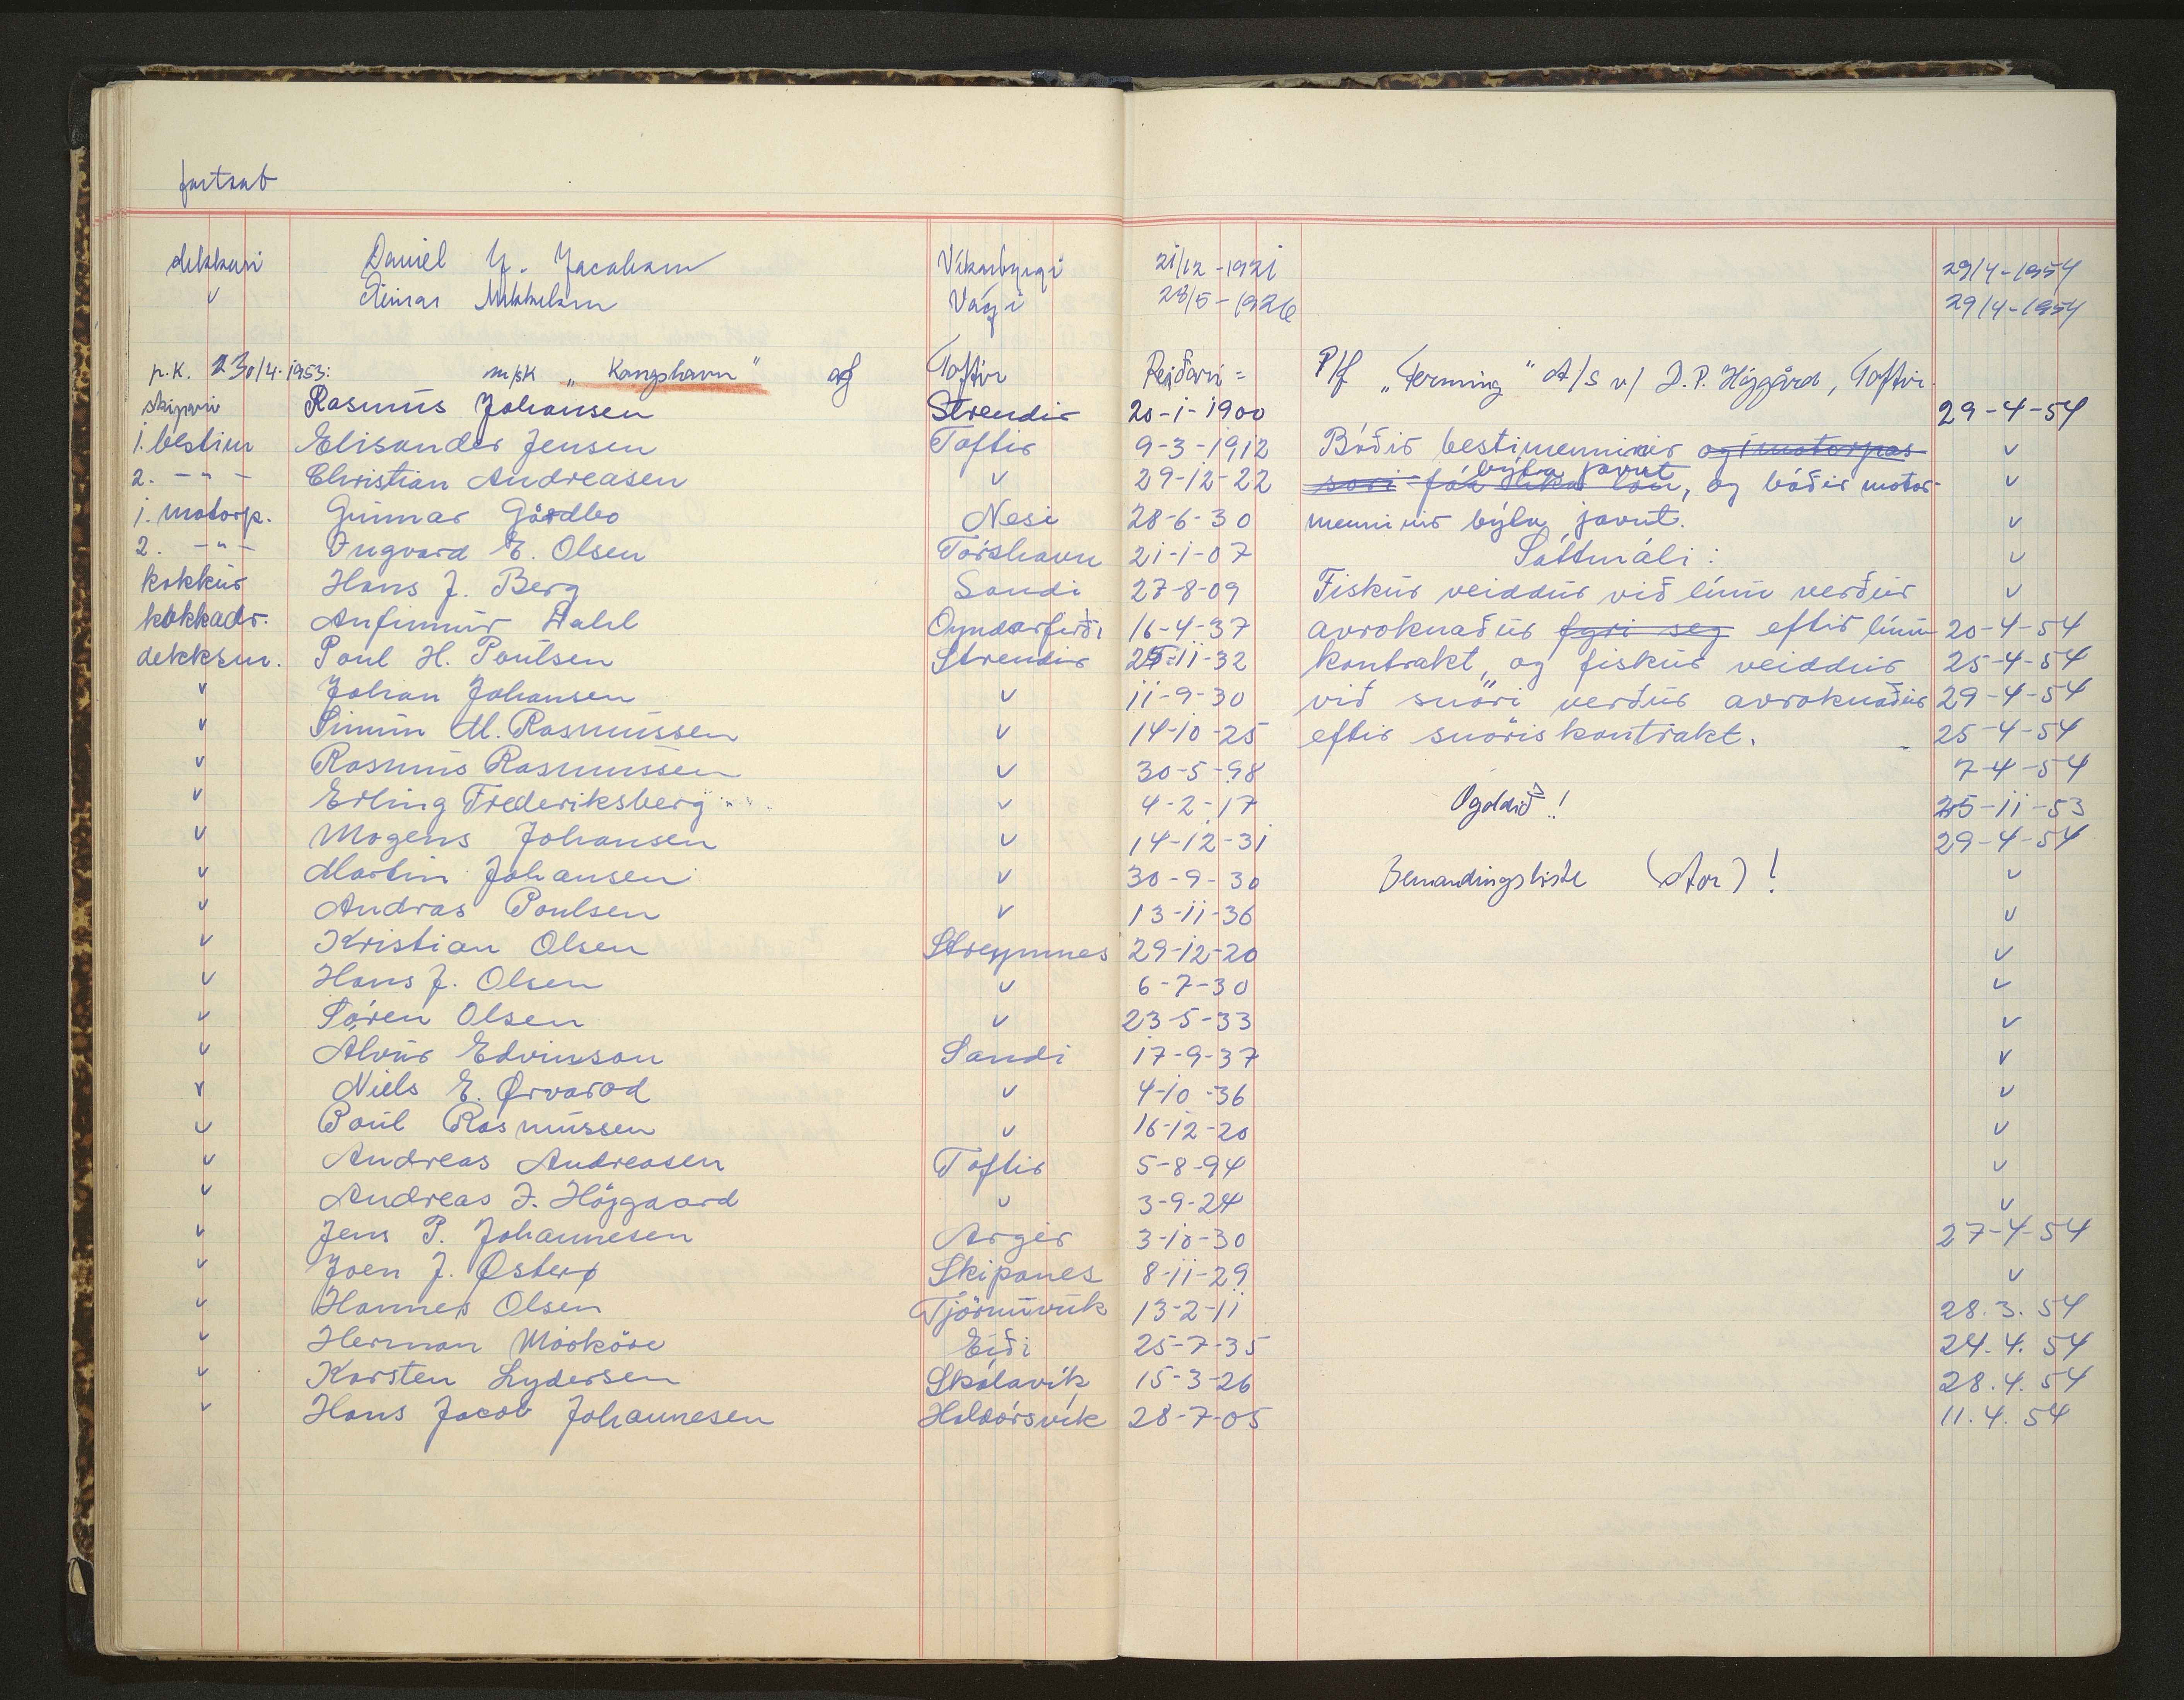 fortsat
dekkari Daniel J. Jacobsen Víkarbyrgi 21/12-1921 29/4-1954
v Einar Mikkelsen Vági 28/5-1926 29/4-1954
p.K. 230/4-1953: m/sk „Kongshavn" af Toftir Reiðarí = P/f „Terning" A/S v/ J.P. Højgård, Toftir.
skipari Rasmus Johansen Strendir 20-1-1900 29-4-54
1. bestim Elisander Jensen Toftir 9-3-1912 Báðir bestimenninir og 1 motorpas- v
2. -"- Christian Andreasen v 29-12-22 sari fáa líka lön, býta javnt, og báðir motor- v
1. motorp. Gunnar Gårdbo Nesi 28-6-30 menninir býta javnt. v
2. -"- Ingvard E. Olsen Tórshavn 21-1-07 Sáttmáli: v
kokkur Hans J. Berg Sandi 27-8-09 Fiskur veiddur við línu verður v
kokkadr. Anfinnur Dahl Oyndarfirði 16-4-37 avroknaður fyri seg eftir línu- 20-4-54
dekksm. Poul H. Poulsen Strendir 25-11-32 kontrakt, og fiskur veiddur 25-4-54
v Johan Johansen v 11-9-30 við snöri verður avroknaður 29-4-54
v Simun M. Rasmussen v 14-10-25 eftir snöriskontrakt. 25-4-54
v Rasmus Rasmussen v 30-5-98 7-4-54
v Erling Frederiksberg v 4-2-17 Ógoldið! 25-11-53
v Mogens Johansen v 14-12-31 29-4-54
v Martin Johansen v 30-9-30 Bemandingsliste (stor)! v
v Andras Poulsen v 13-11-36 v
v Kristian Olsen Streymnes 29-12-20 v
v Hans J. Olsen v 6-7-30 v
v Sören Olsen v 23-5-33 v
v Álvur Edvinson Sandi 17-9-37 v
v Niels E. Ørvarod v 4-10-36 v
v Poul Rasmussen v 16-12-20 v
v Andreas Andreasen Toftir 5-8-94 v
v Andreas J. Höjgaard v 3-9-24 v
v Jens P. Johannesen Argir 3-10-30 27-4-54
v Joen J. Østerø Skipanes 8-11-29 v
v Hannes Olsen Tjörnuvík 13-2-11 28.3.54
v Herman Mörköre Eiði 25-7-35 24.4.54
v Karsten Lydersen Skálavík 15-3-26 28.4.54
v Hans Jacob Johannesen Haldórsvík 28-7-05 11.4.54